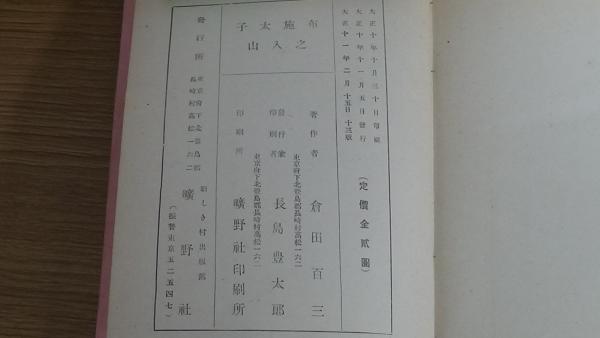 大正十年十月三十日印刷
大正十年十一月五日發行
大正十一年二月十五日十三版
(定價金貳圓)
布施太子
之入山
著作者 倉田百三
東京府下北豊島郡長崎村高松一六二
發行兼
印刷者 長島豊太郎
東京府下北豊島郡長崎村高松一六二
印刷所 曠野社印刷所
發行所 東京府下北豊島郡
長崎村高松一六二
新しき村出版部
曠野社
(振替東京五二五四七)